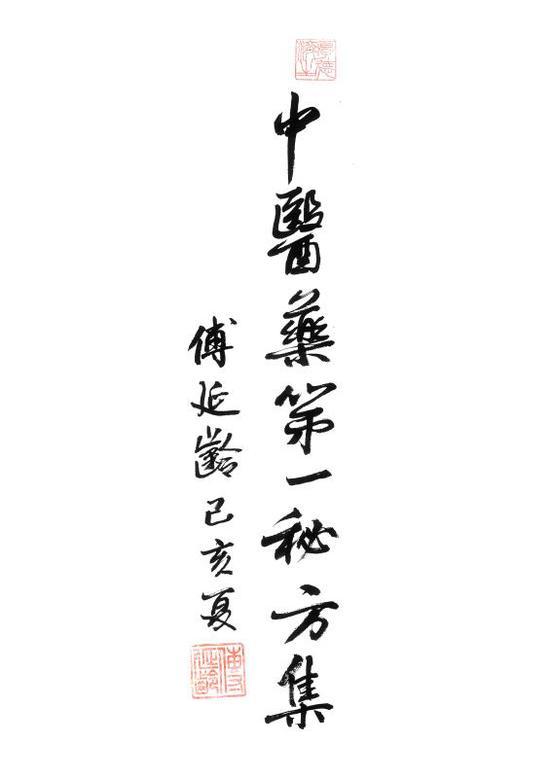 中醫藥第一秘方集
傅延齡己亥夏